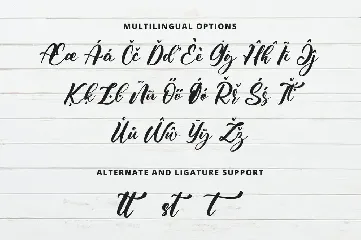 MULTILINGUAL OPTIONS
Ææ Áá Čč Ďď Èè Ģģ Ĥĥ Ĩĩ Ĵĵ
Ķķ Ŀŀ Ññ Őő Řř Śś Ť
Úú Ŵŵ Ỹỹ Žž
ALTERNATE AND LIGATURE SUPPORT
tt st t